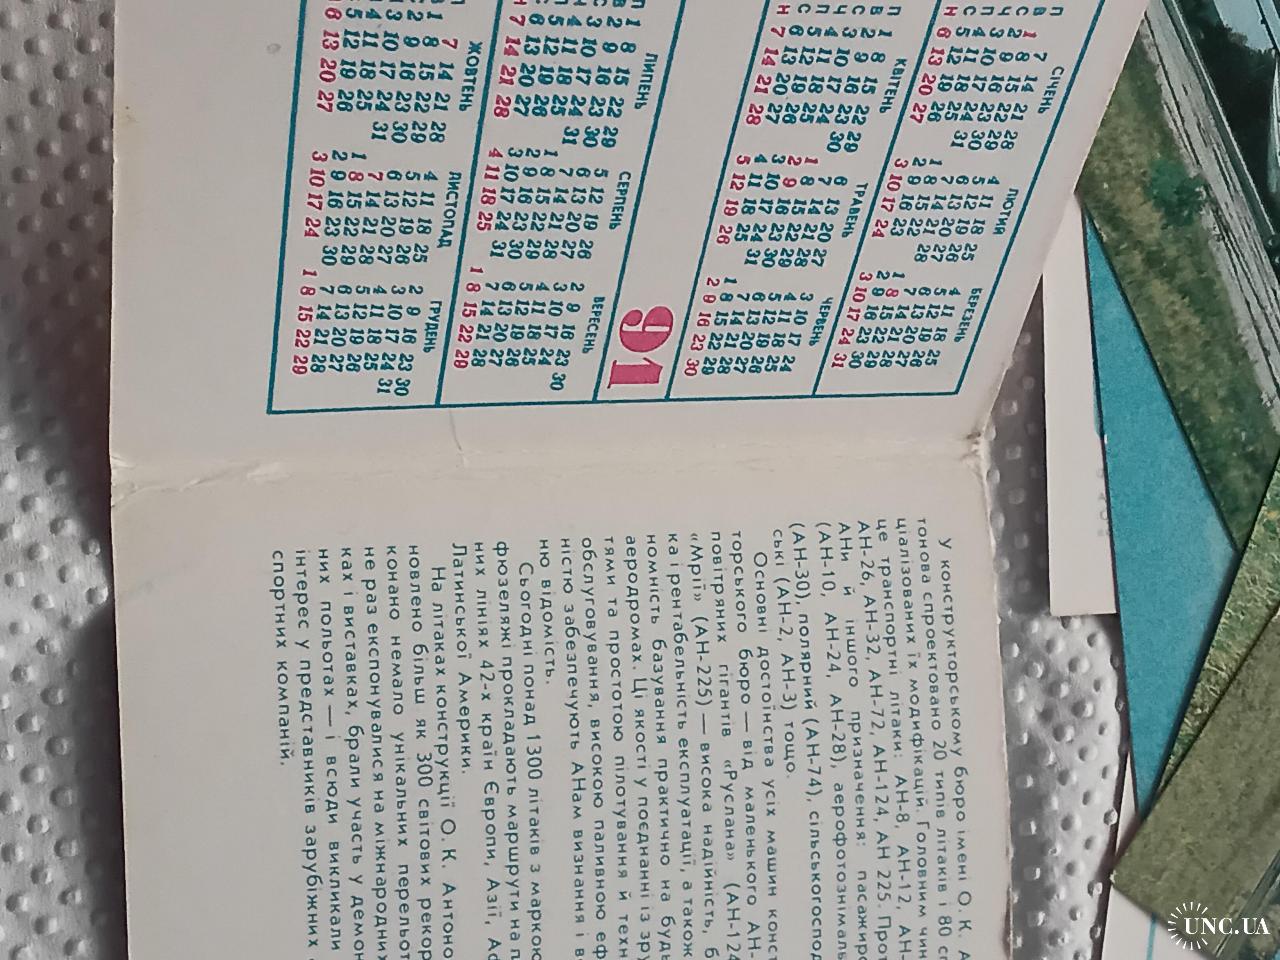 СІЧЕНЬ ЛЮТИЙ БЕРЕЗЕНЬ
П 7 14 21 28 4 11 18 25 4 11 18 25
В 1 8 15 22 29 5 12 19 26 5 12 19 26
С 2 9 16 23 30 6 13 20 27 6 13 20 27
Ч 3 10 17 24 31 7 14 21 28 7 14 21 28
П 4 11 18 25 1 8 15 22 1 8 15 22 29
С 5 12 19 26 2 9 16 23 2 9 16 23 30
Н 6 13 20 27 3 10 17 24 3 10 17 24 31
КВІТЕНЬ ТРАВЕНЬ ЧЕРВЕНЬ
П 1 8 15 22 29 6 13 20 27 3 10 17 24
В 2 9 16 23 30 7 14 21 28 4 11 18 25
С 3 10 17 24 1 8 15 22 29 5 12 19 26
Ч 4 11 18 25 2 9 16 23 30 6 13 20 27
П 5 12 19 26 3 10 17 24 31 7 14 21 28
С 6 13 20 27 4 11 18 25 1 8 15 22 29
Н 7 14 21 28 5 12 19 26 2 9 16 23 30
91
ЛИПЕНЬ СЕРПЕНЬ ВЕРЕСЕНЬ
П 1 8 15 22 29 5 12 19 26 2 9 16 23 30
В 2 9 16 23 30 6 13 20 27 3 10 17 24
С 3 10 17 24 31 7 14 21 28 4 11 18 25
Ч 4 11 18 25 1 8 15 22 29 5 12 19 26
П 5 12 19 26 2 9 16 23 30 6 13 20 27
С 6 13 20 27 3 10 17 24 31 7 14 21 28
Н 7 14 21 28 4 11 18 25 1 8 15 22 29
ЖОВТЕНЬ ЛИСТОПАД ГРУДЕНЬ
П 7 14 21 28 4 11 18 25 2 9 16 23 30
В 1 8 15 22 29 5 12 19 26 3 10 17 24 31
2 9 16 23 30 6 13 20 27 4 11 18 25
3 10 17 24 31 7 14 21 28 5 12 19 26
4 11 18 25 1 8 15 22 29 6 13 20 27
5 12 19 26 2 9 16 23 30 7 14 21 28
6 13 20 27 3 10 17 24 1 8 15 22 29
У конструкторському бюро імені О. К. А
тонова спроектовано 20 типів літаків і 80 сп
ціалізованих їх модифікацій. Головним чин
це транспортні літаки: АН-8, АН-12, АН-
АН-26, АН-32, АН-72, АН-124, АН 225. Прот
АНи й іншого призначення: пасажирс
(АН-10, АН-24, АН-28), аерофотознімаль
(АН-30), полярний (АН-74), сільськогоспод
ські (АН-2, АН-3) тощо.
Основні достоїнства усіх машин конст
торського бюро — від маленького АН-
повітряних гігантів «Руслана» (АН-124
«Мрії» (АН-225) — висока надійність, б
ка і рентабельність експлуатації, а також
номність базування практично на будь
аеродромах. Ці якості у поєднанні із зру
тями та простотою пілотування й техн
обслуговування, високою паливною еф
ністю забезпечують АНам визнання і в
ню відомість.
Сьогодні понад 1300 літаків з маркою
фюзеляжі прокладають маршрути на п
них лініях 42-х країн Європи, Азії, Аф
Латинської Америки.
На літаках конструкції О. К. Антоно
новлено більш як 300 світових рекор
конано немало унікальних перельот
не раз експонувалися на міжнародних
ках і виставках, брали участь у демон
них польотах — і всюди викликали
інтерес у представників зарубіжних
спортних компаній.
UNC.UA